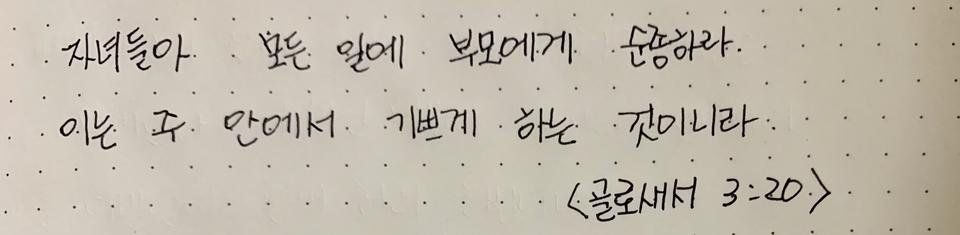 자녀들아 모든 일에 부모에게 순종하라.
이는 주 안에서 기쁘게 하는 것이니라.
<골로새서 3:20>